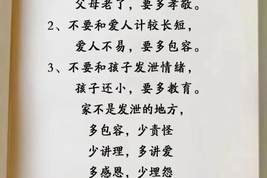 父母老了，要多孝敬。
2、不要和爱人计较长短，
爱人不易，要多包容。
3、不要和孩子发泄情绪，
孩子还小，要多教育。
家不是发泄的地方，
多包容，少责怪
少讲理，多讲爱
多感恩，少埋怨